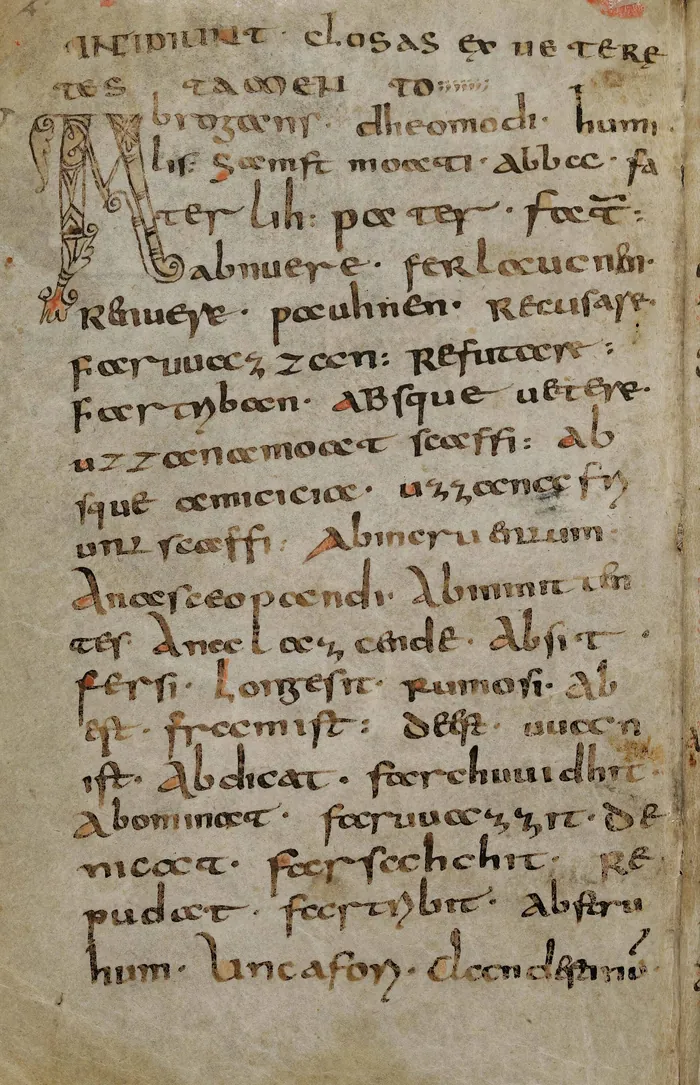 INCIPIUNT · CLOSAS EX UETERE
TES TAMEN TO
Abrogans · dheomodi · humi
lis · samft moati · abba · fa
terlih : pater · fat̄ :
abnuere · ferlaucnen ·
Renuere · pauhnen · Recusare ·
faruuazzan : Refutare :
fartriban · Absque uetere ·
uzzanamoat scaffi : Ab
sque amicicia · uzzanafri
untscaffi · Abincruentum
Anasceopandi · Abminiten
tes Anaclazzende · Absit ·
fersi · Longesit · rumosi · Ab
est · framist : deest · uuan
ist · Abdicat · farchuuidhit ·
Abominat · faruuazzit · De
nicat · farsahchit · Re
pudiat · fartribit · Abstru
hum · Uncafori · Clandestinū